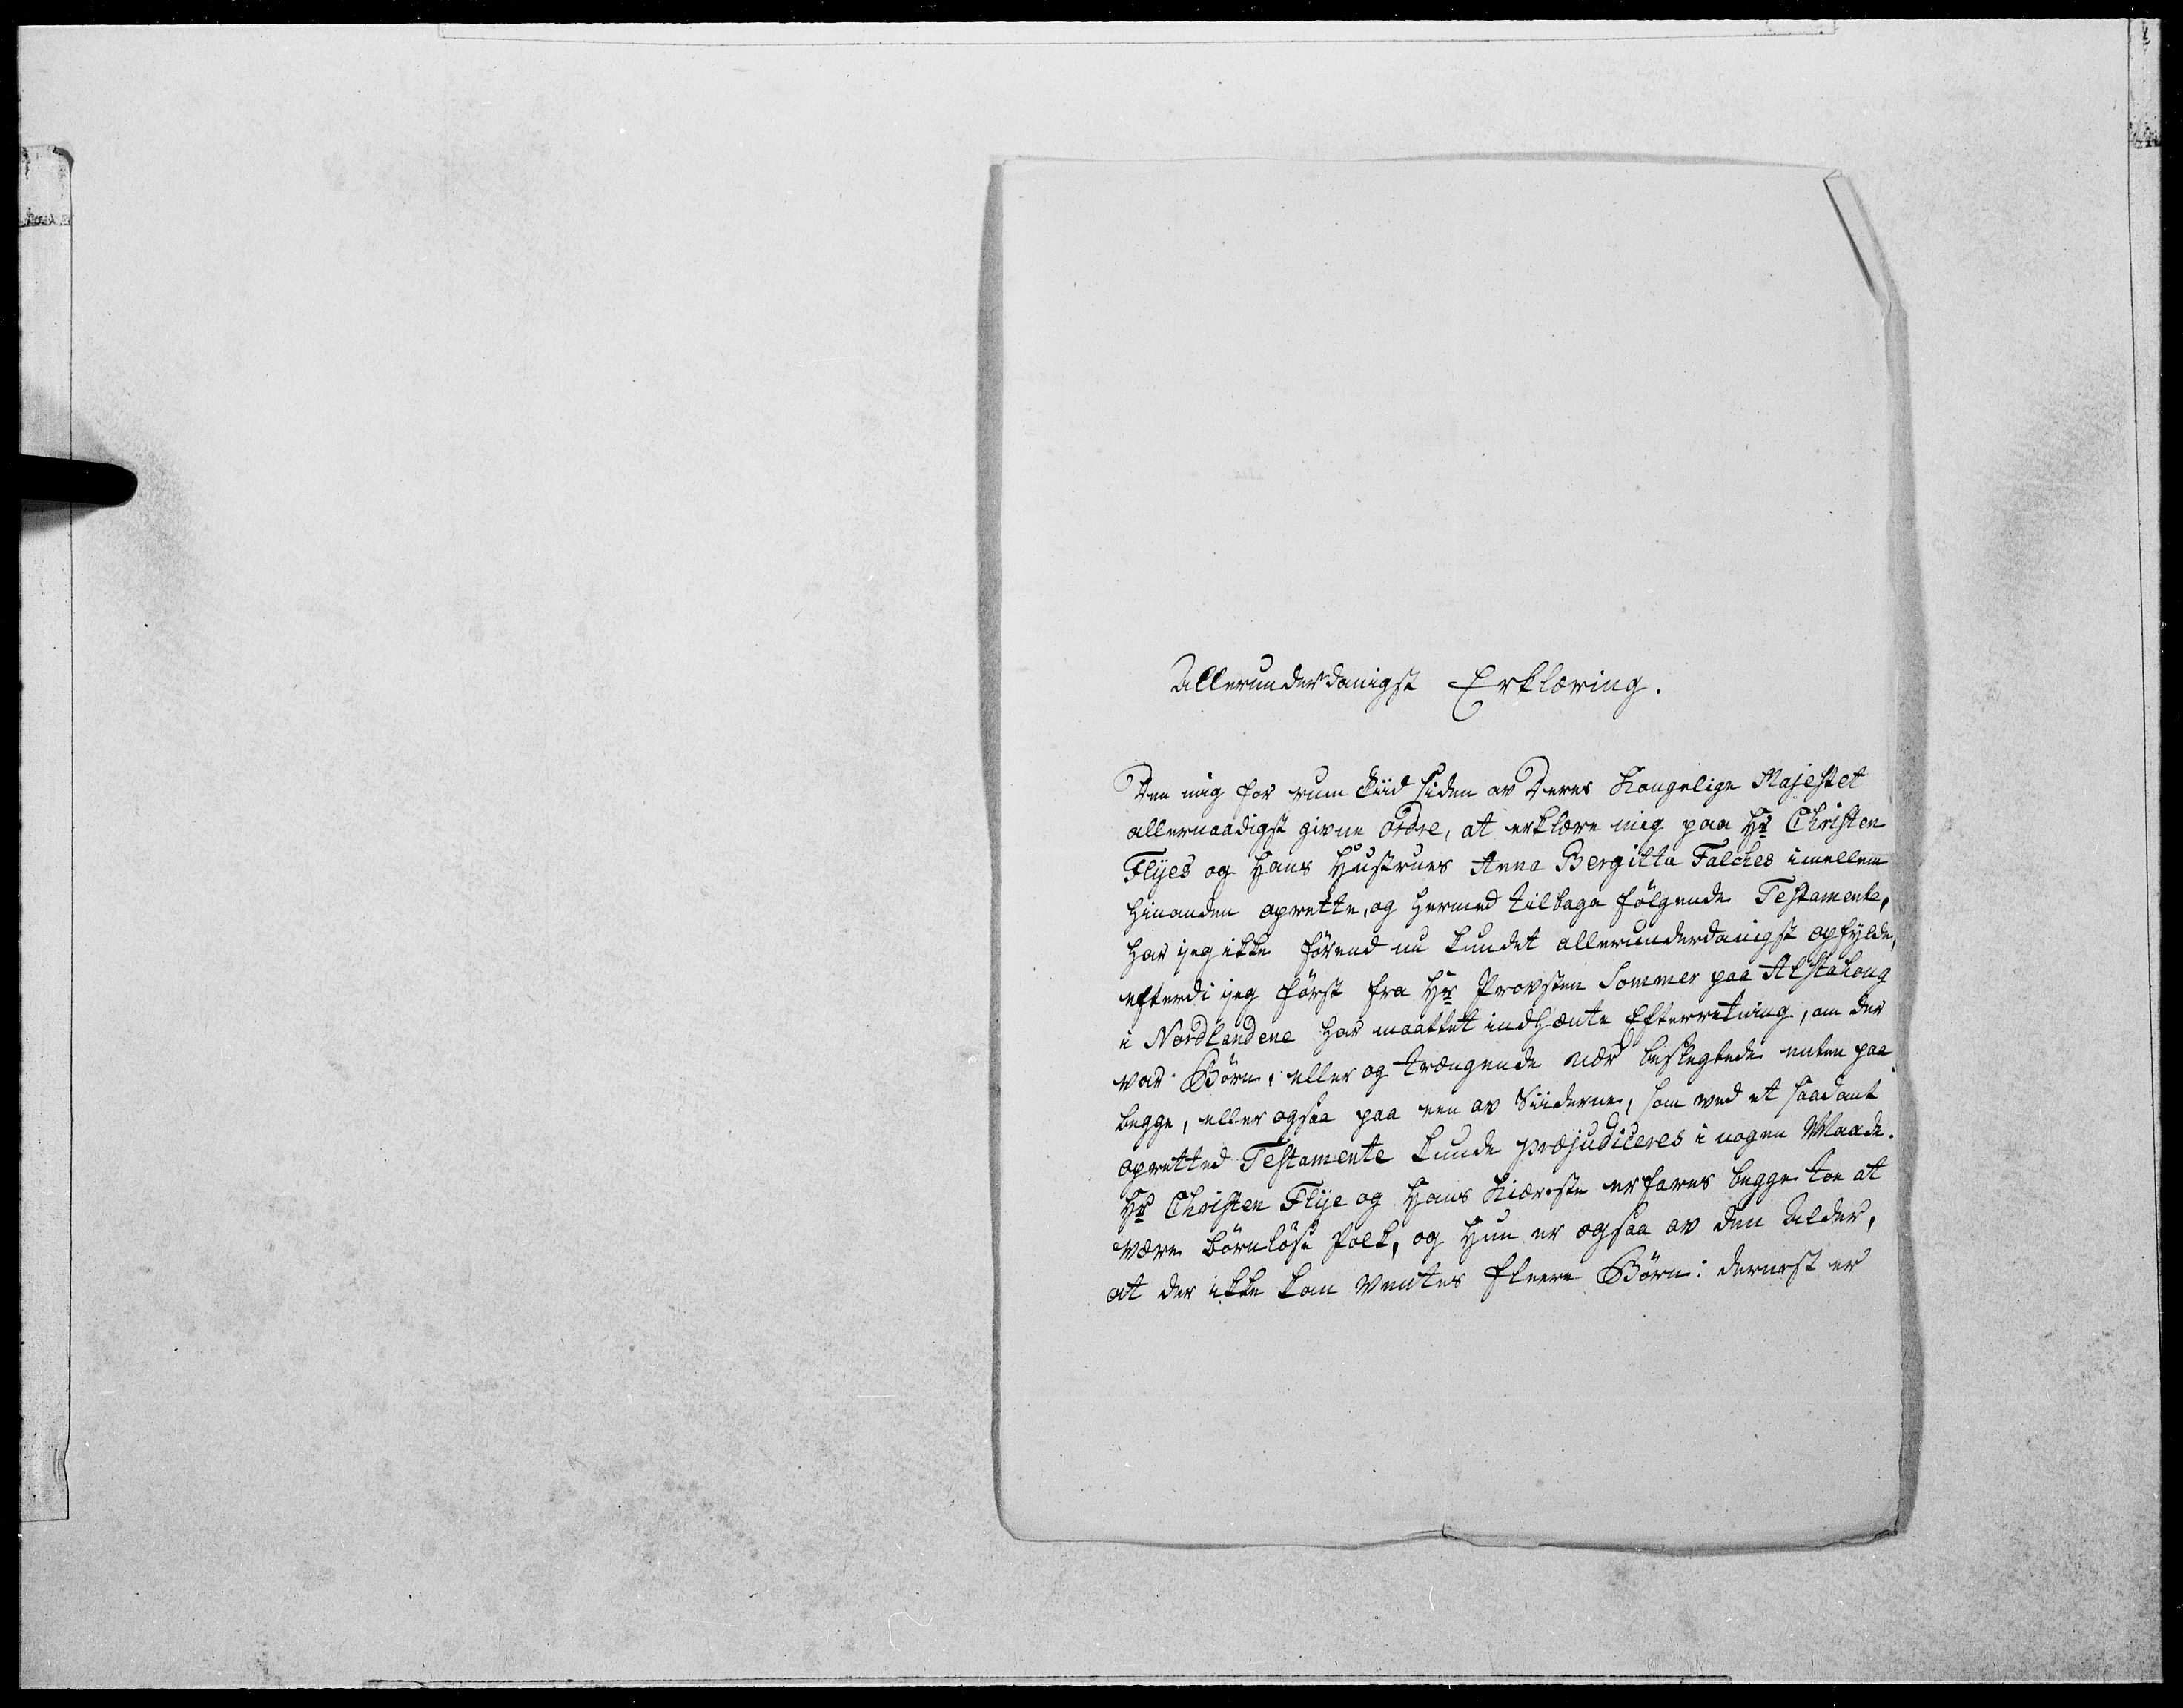 Allerunderdanigst Erklæring.
Den mig for rum Tiid siden av Deres Kongelige Majestet
allernaadigst givne ordre, at erklære mig paa Hr Christen
Flÿes og Hans Hustrues Anna Bergitta Falches imellem
hinanden oprette, og hermed tilbage følgende Testamente,
har jeg ikke førend nu kundet allerunderdanigst opfylde,
efterdi jeg først fra Hr Provsten Sommer paa Alstahoug
i Nordlandene har maattet indhænte Efterretning, om der
var Børn, eller og trængende nær beslegtede enten paa
begge, eller ogsaa paa een av Siiderne, som ved et saadant
oprettet Testamente kunde præjudiceres i nogen Maade.
Hr Christen Flÿe og Hans Kiæreste erfares begge toe at
være børnløse Folk, og Hun er ogsaa av den Alder,
at der ikke kan ventes fleere Børn: dernest er